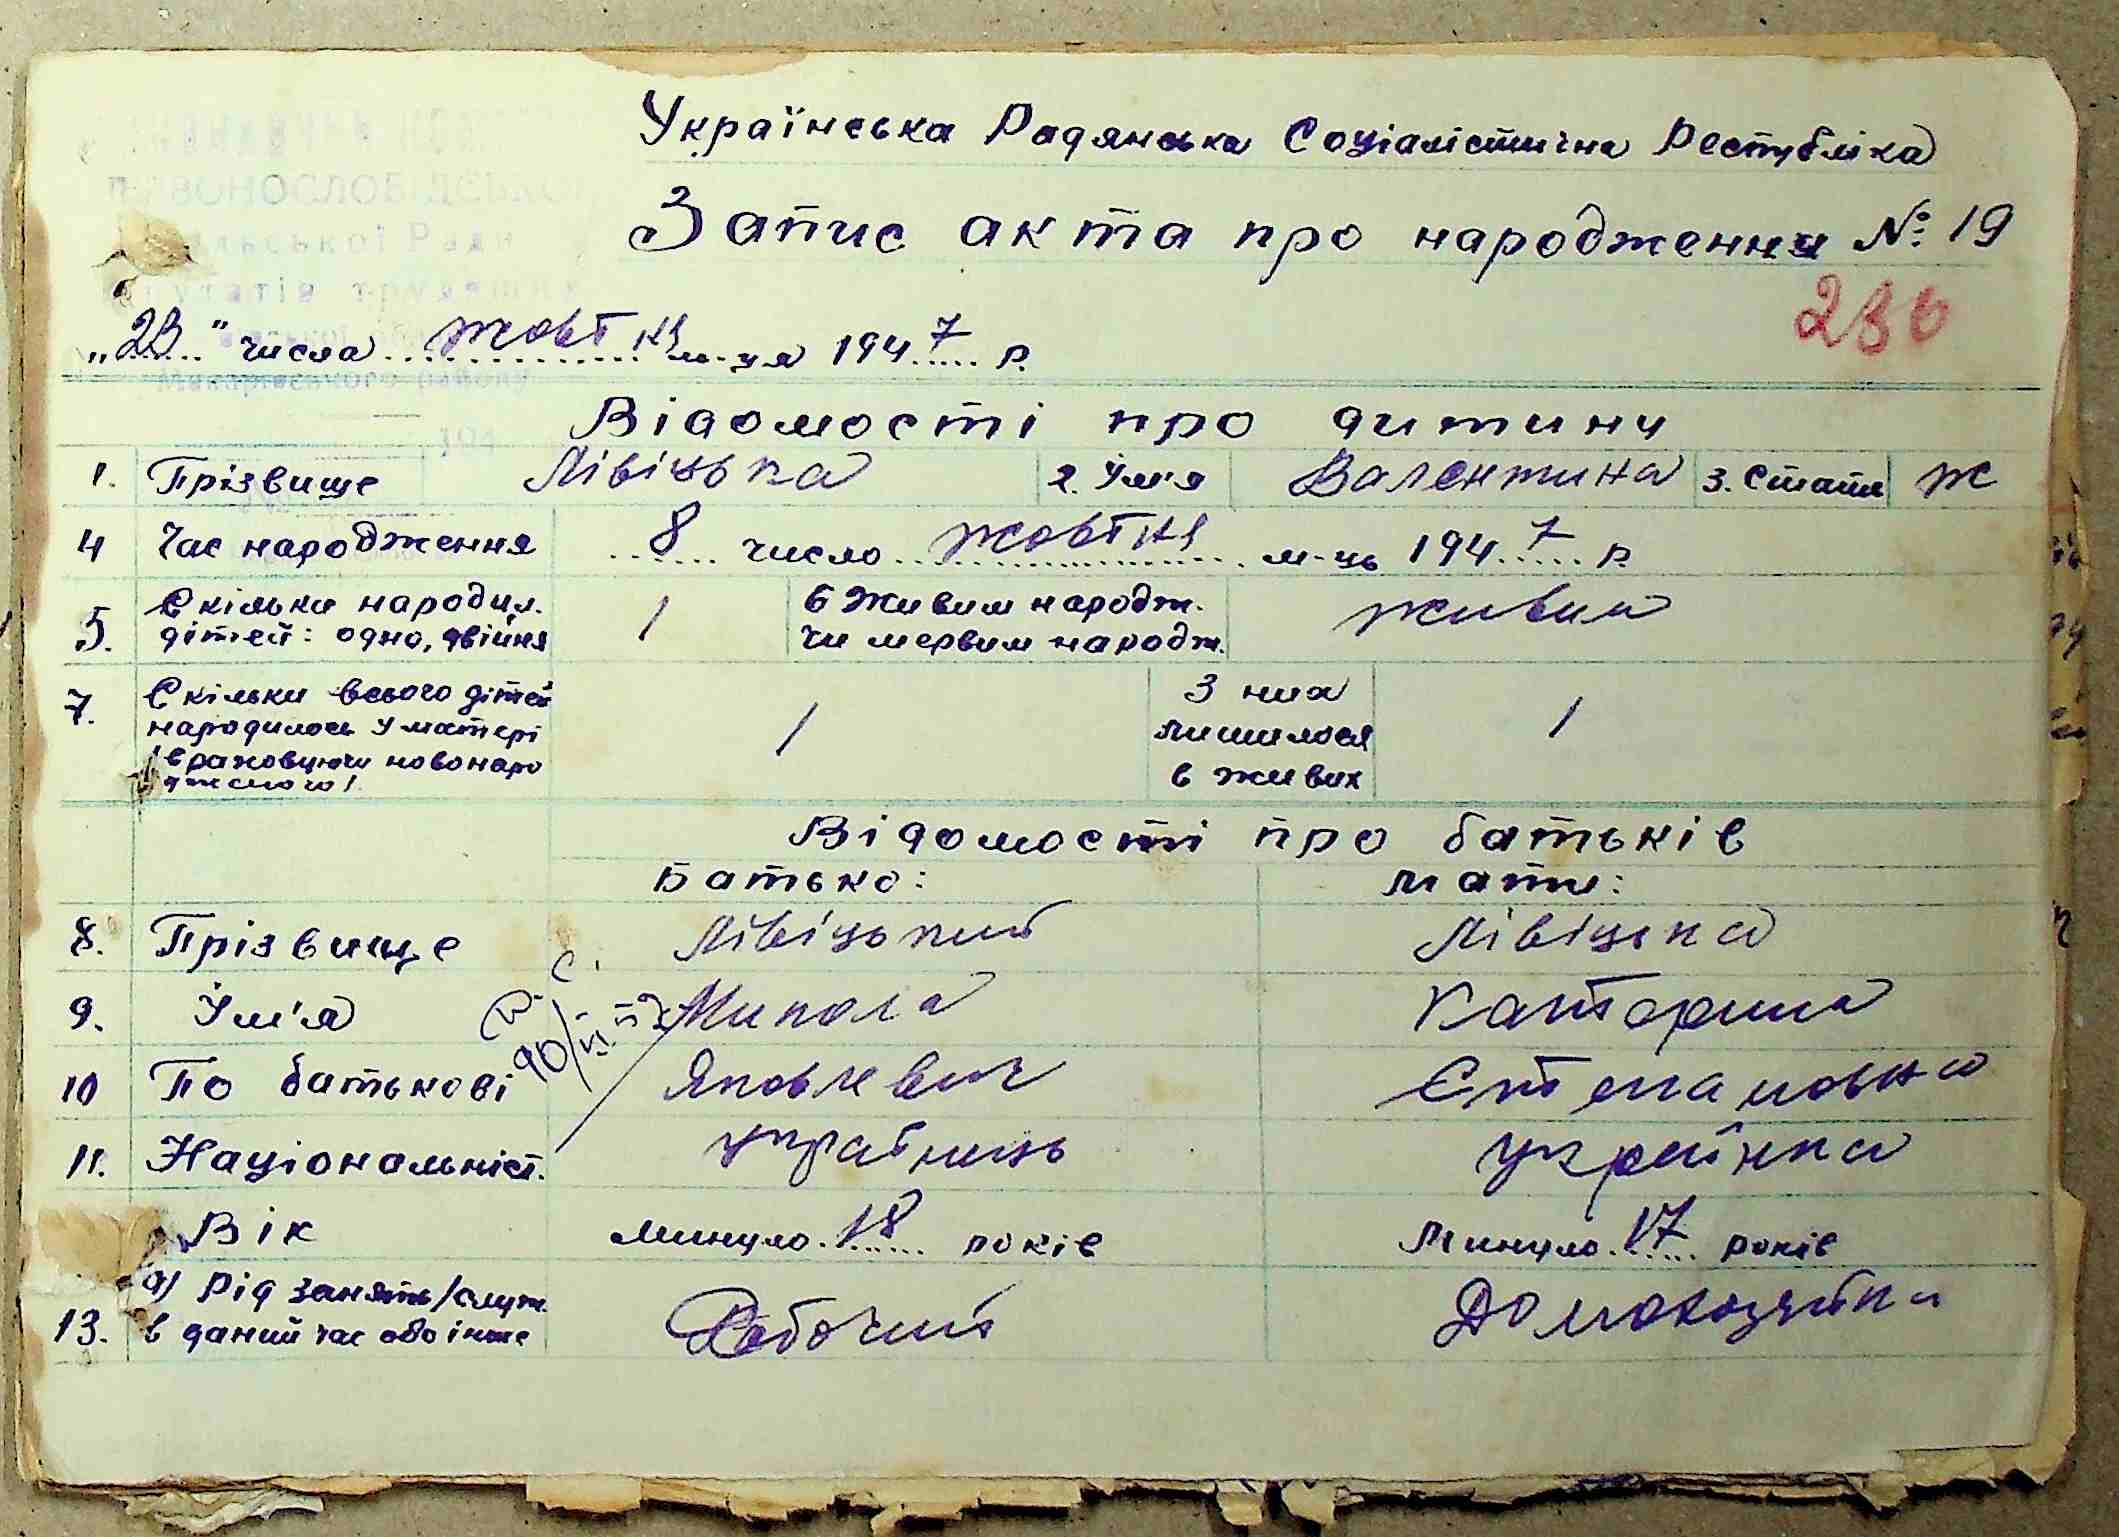 Українська Радянська Соціалістична Республіка
Запис акта про народження №: 19
236
„23" числа жовтня м-ця 1947 р.
Макарівського району
194
Відомості про дитину
1. Прізвище Лівіцька 2. Ім'я Валентина 3. Стать ж
4 Час народження 8 число жовтня м-ць 1947 р.
5. Скільки народил. дітей: одно, двійня 1 6 Живим народж. чи мервим народж. живим
7. Скільки всього дітей народилось у матері /враховуючи новонародженого/. 1 З них лишилося в живих 1
Відомості про батьків
Батько: Мати:
8. Прізвище Лівіцький Лівіцька
9. Ім'я Микола Катерина
10 По батькові Яковлевич Степановна
11. Національніст. українець українка
Вік минуло 18 років минуло 17 років
13. а) Рід занять/служ. в даний час або інше Робочий Домохозяйка